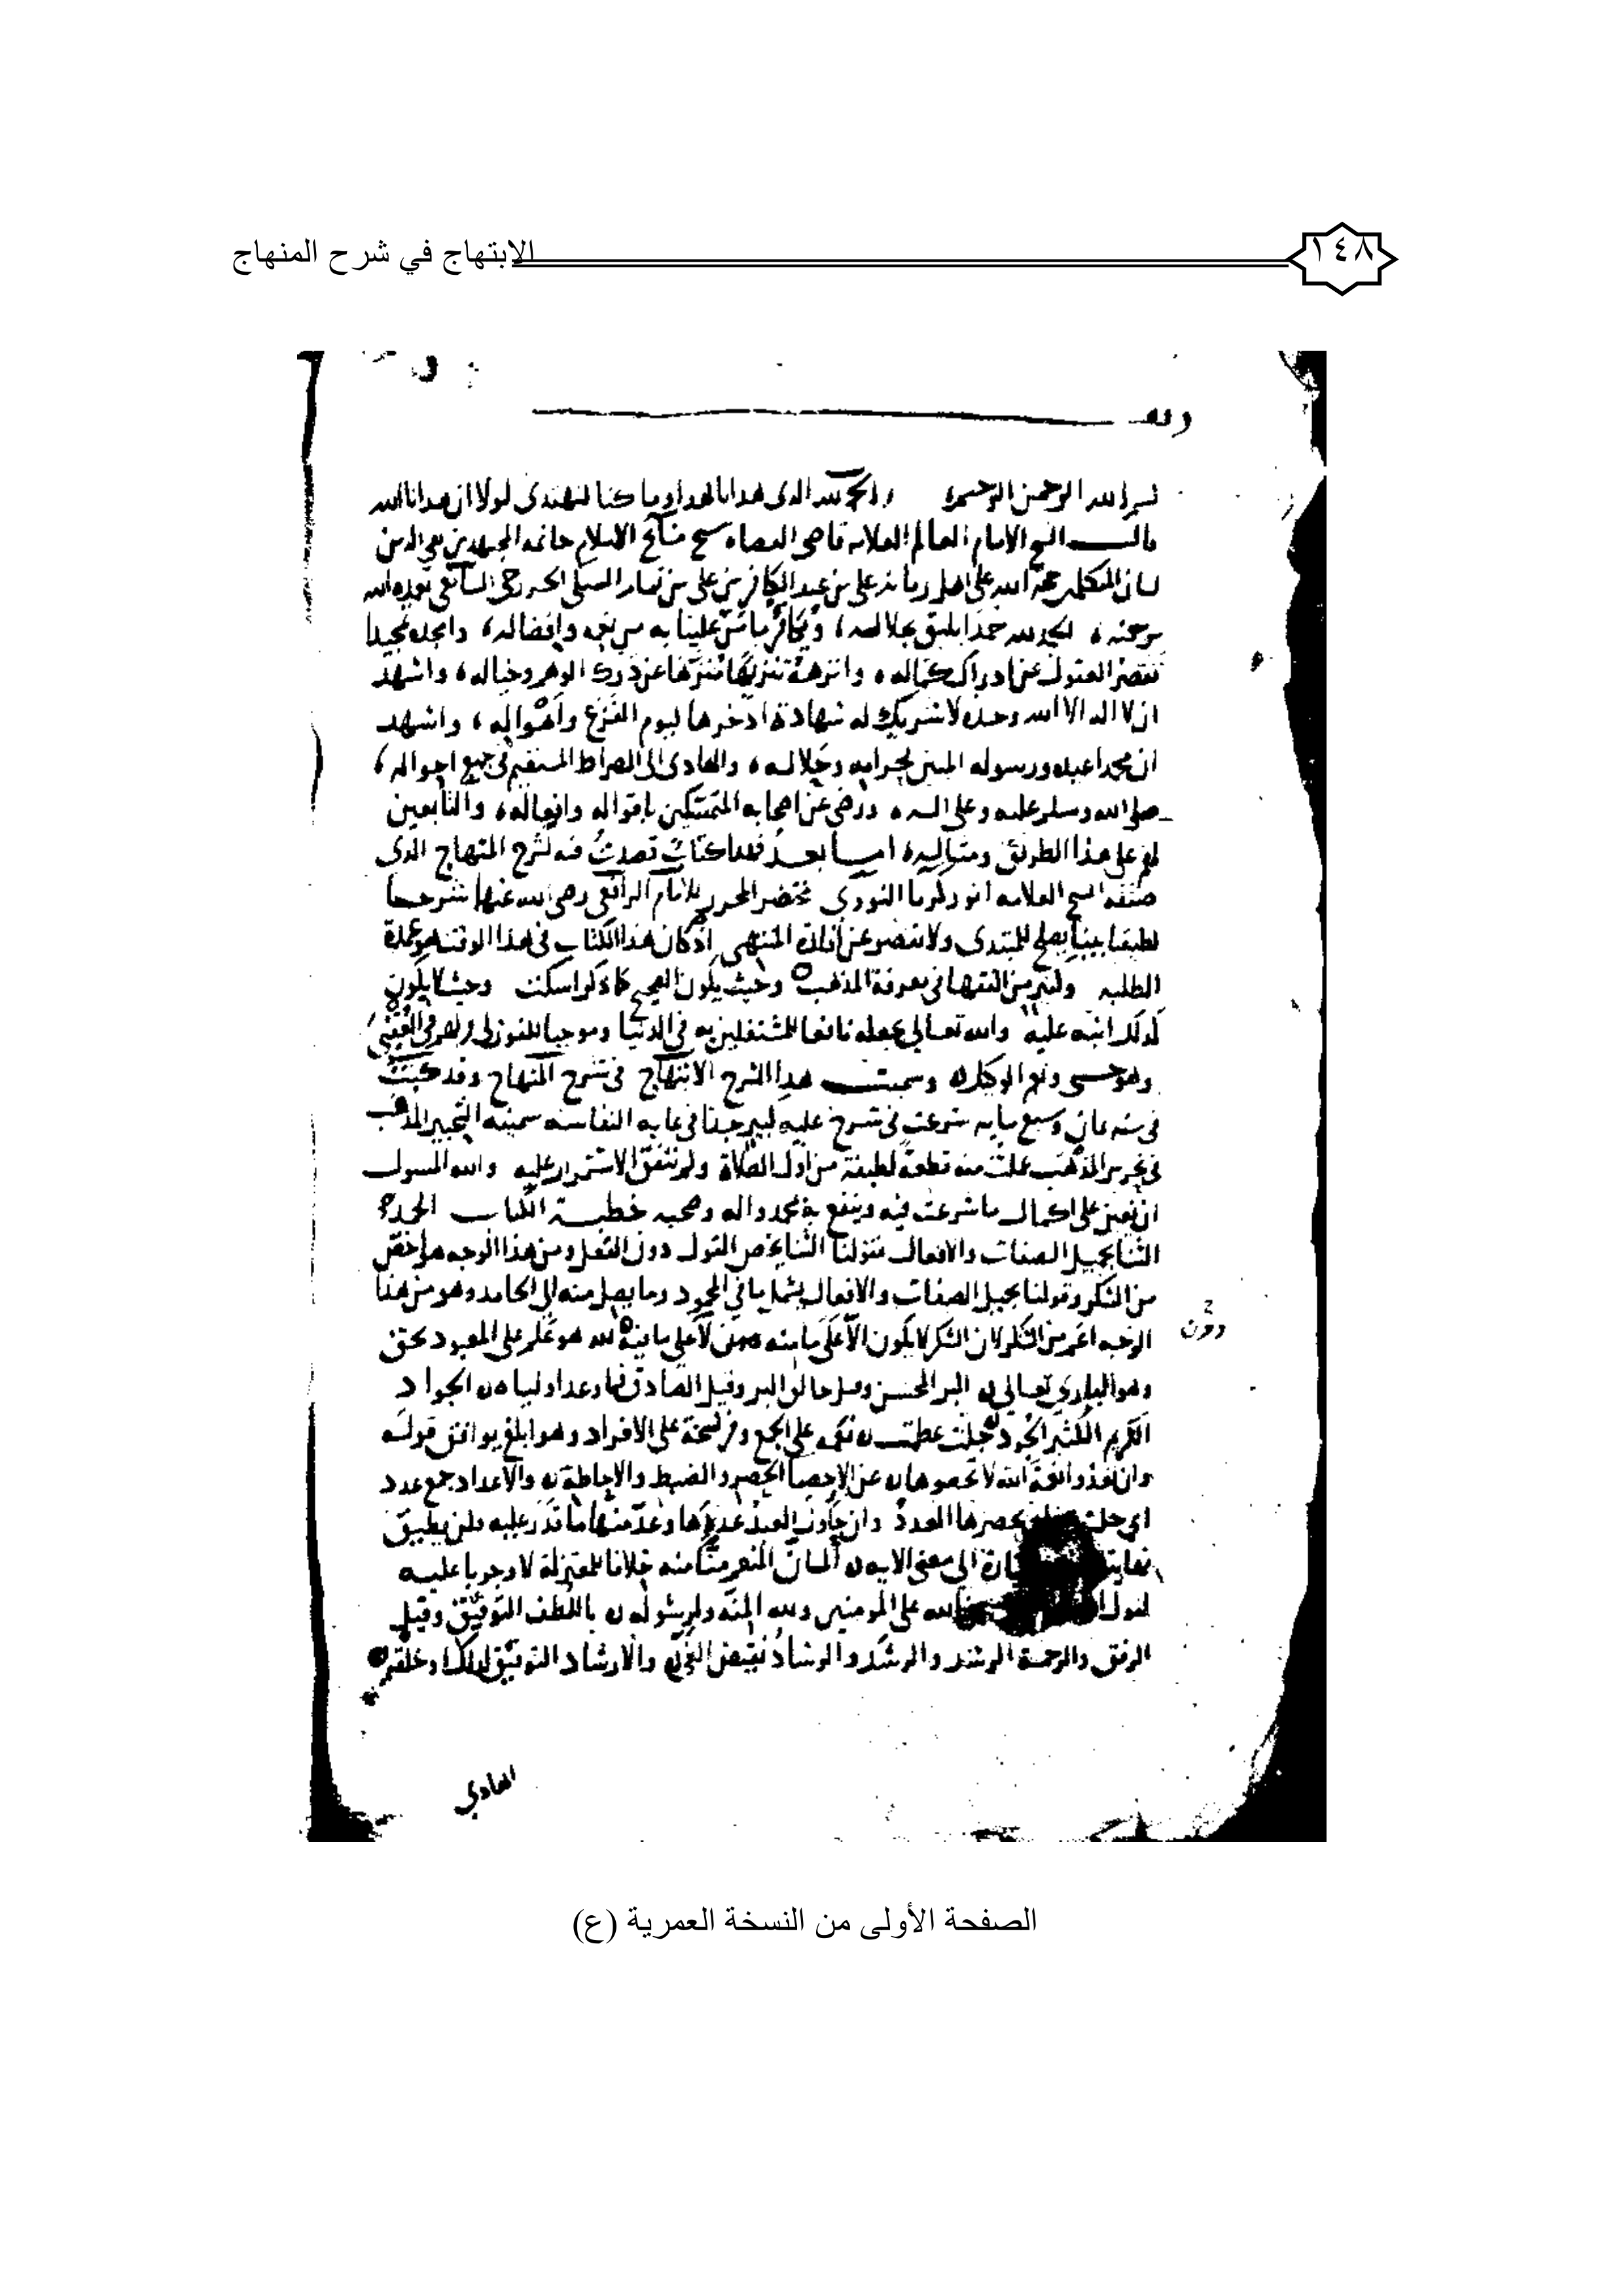 ١٤٨
الابتهاج في شرح المنهاج
بسم الله الرحمن الرحيم والحمد لله الذى هدانا لهذا وما كنا لنهتدى لولا ان هدانا الله
قال الشيخ الامام العالم العلامه قاضى القضاه شيخ مشايخ الاسلام خاتمه المجتهدين تقي الدين
لسان المتكلمين حجة الله على اهل زمانه على بن عبد الكافى بن على بن تمام السبكى الخزرجى الشافعى تغمده الله
برحمته الحمد لله حمدا يليق بجلاله، ويكافئ ما من علينا به من نعمه وافضاله، وامجده تمجيدا
تقصر العقول عن ادراك كماله، وانزهه تنزيها منزها عن درك الوهم وخياله، واشهد
ان لا اله الا الله وحده لا شريك له شهادة ادخرها ليوم الفزع واهواله، واشهد
ان محمدا عبده ورسوله المبين لحرامه وحلاله، والهادى الى الصراط المستقيم فى جميع احواله،
صلى الله وسلم عليه وعلى اله، ورضى عن اصحابه المتمسكين باقواله وافعاله، والتابعين
لهم على هذا الطريق ومثاله، اما بعد فهذا كتاب قصدت فيه لشرح المنهاج الذى
صنفه الشيخ العلامه ابو زكريا النووي مختصر المحرر للامام الرافعى رضى الله عنهما شرحا
لطيفا بينا يصلح للمبتدى ولا يقصر عن افادة المنتهى اذ كان هذا الكتاب فى هذا الوقت هو عمدة
الطلبه وكثير من الفقها فى معرفة المذهب وحيث يكون الصحيح كما ذكر اسكت وحيث لا يكون
كذلك انبه عليه والله تعالى يجعله نافعا للمشتغلين به فى الدنيا وموجبا للفوز لى ولهم فى العقبى
وهو حسبى ونعم الوكيل وسميت هذا الشرح الابتهاج فى شرح المنهاج وقد كنت
فى سنه ثمان وسبع مايه شرعت فى شرح عليه كبير جدا فى غايه النفاسه سميته التحبير المذهب
فى تحرير المذهب عملت منه قطعة لطيفة من اول الصلاة ولم يتفق الاستمرار عليه والله المسول
ان يعين على اكمال ما شرعت فيه وينفع به بمحمد واله وصحبه خطبة الكتاب الحمد
الثنا بجميل الصفات والافعال فقولنا الثنا يخص القول دون الفعل ومن هذا الوجه هو اخص
من الشكر وقولنا بجميل الصفات والافعال يشمل ما فى المحمود وما يصل منه الى الحامد وهو من هذا
الوجه اعم من الشكر لان الشكر لا يكون الا على ما منه لا على ما فيه لله هو علم على المعبود بحق
وهو الباري تعالى البر المحسن وقيل خالق البر وقيل الصادق فيما وعد اولياه الجواد
الكريم الكثير الجود جلت عظمت نعمه على الجمع وفى نسخة على الافراد وهو ابلغ يوافق قوله
وان تعدوا نعمة الله لا تحصوها عن الاحصا الحصر والضبط والاحاطة والاعداد جمع عدد
اى جلت يحصرها العدد وان حاول العبد عدها وعد منها ما قدر عليه فلن يطيق
نهايتها الى معنى الايه المان المنعم منا منه خلافا للمعتزلة لا وجوبا عليه
لله على المومنين ولله المنه ولرسوله باللطف التوفيق وقيل
الرفق والرحمة الرشد والرشد والرشاد نقيض الغي والارشاد التوفيق لذلك وخلقه
الهادي
الصفحة الأولى من النسخة العمرية (ع)